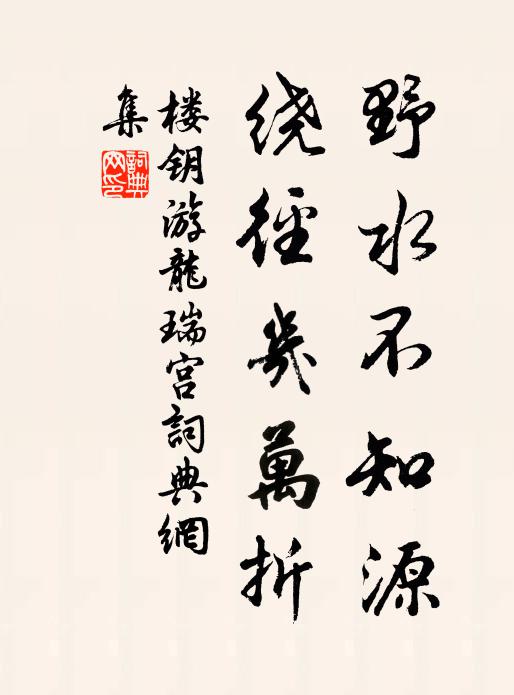 野水不知源
绕徑幾萬折
楼钥游龍瑞宫詞典網
集
詞典網印